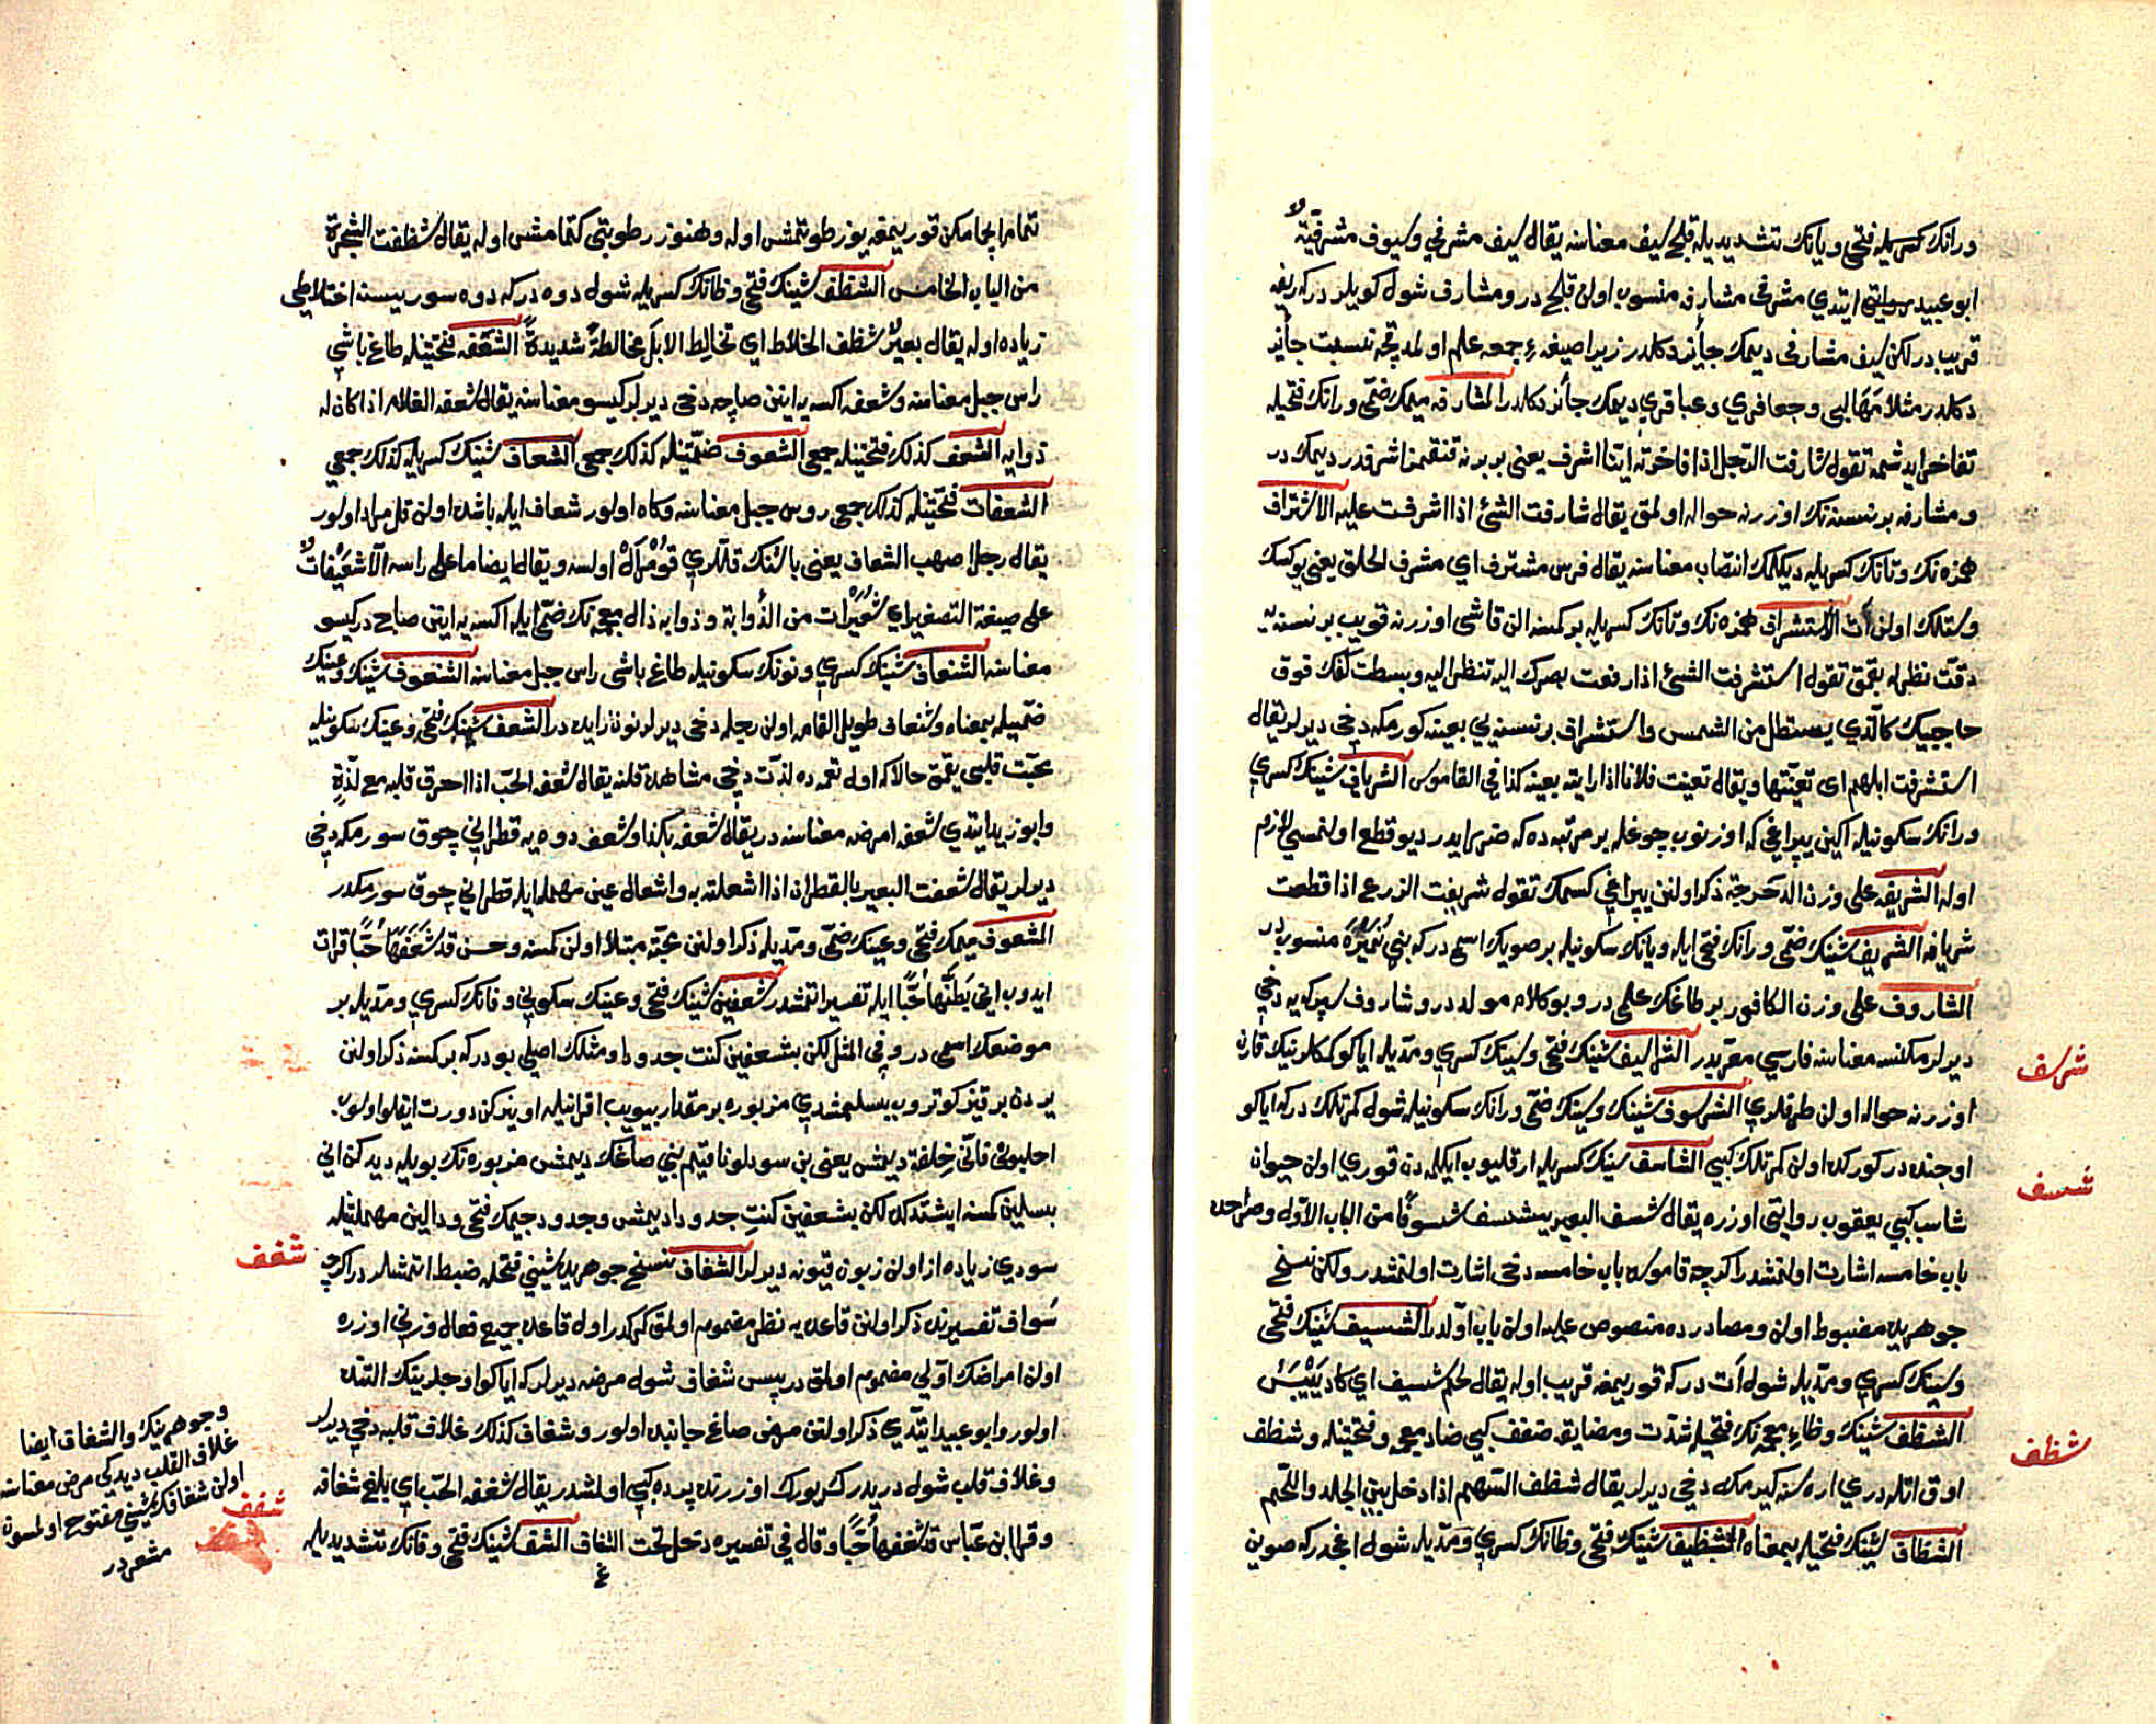 ورانك كسريله فتحی ویانك تشدیدیله قلج سیف معناسنه یقال سیف مشرفی وسیوف مشرفیة
ابو عبید روایتی ایتدی مشرفی مشارفه منسوب اولن قلج در ومشارف شول كویلر دركه ریفه
قریب در لكن سیف مشارفی دیمك جائز دكلدر زیرا صیغهٔ جمعه علم اولمدقجه نسبت جائز
دكلدر مثلا مهالبی وجعافری وعباقری دیمك جائز دكلدر المشارفه میمك ضمی ورانك فتحیله
تفاخر ایدشمه تقول شارفت الرجل اذا فاخرته اینا اشرف یعنی بر برنه تنقمنا شرقدر دیمك در
ومشارفه بر نسنه نك اوزرنه حواله اولمق یقال شارفت الشئ اذا اشرفت علیه الاشتراف
همزه نك وتانك كسریله دیكلمك انتصاب معناسنه یقال فرس مشترف ای مشرف الحلق یعنی یوكسك
وستلك اولن ات الاستشراف همزه نك وتانك كسریله بر كمسه الن قاشی اوزرنه قویب بر نسنه یه
دقت نظرله بقمق تقول استشرفت الشئ اذا رفعت بصرك الیه تنظر الیه وبسطت كفك فوق
حاجبیك كالذی یستظل من الشمس واستشراف بر نسنه یی بعینه كورمكه دخی دیرلر یقال
استشرفت ابلهم ای تعینتها ویقال تعینت فلانا اذا رایته بعینه كذا فی القاموس الشریاف شینك كسری
ورانك سكونیله اكین یپراغی كه اوزنوب چوغله بر مرتبه ده كه ضرر ایدر دیو قطع اولنمسی لازم
اوله الشریفه علی وزن الدحرجة ذكر اولنن یپراغی كسمك تقول شریفت الزرع اذا قطعت
شریافه الشریف شینك ضمی ورانك فتحی ایله ویانك سكونیله بر صویك اسمی در كه بنی نمیره منسوب در
الشاروف علی وزن الكافور بر طاغك علمی در وبو كلام مولد در وشاروف سپركه یه دخی
دیرلر مكنسه معناسنه فارسی معربدر الشرسیف شینك فتحی وسینك كسری ومدیله ایاكو كمكلرینك قارن
اوزرنه حواله اولن طرفلری الشرسوف شینك وسینك ضمی ورانك سكونیله شول كمرتلك دركه ایاكو
اوجنده در كورلن اولن كمرتلك كبی الشاسف سینك كسریله ارقلیوب ایكلمه دن قوری اولن حیوان
شاسب كبی یعقوب روایتی اوزره یقال شسف البعیر یشسف شسوفا من الباب الاول وصراحده
باب خامسه اشارت اولنمشدر اكرچه قاموسده باب خامسه دخی اشارت اولنمشدر ولكن نسخ
جوهریده مضبوط اولن ومصادرده منصوص علیه اولن باب اولدر الشسیف شینك فتحی
وسینك كسری ومدیله شول ات در كه قوریمغه قریب اوله یقال لحم شسیف ای كاد ییبس
الشظف شینك وظاء معجمه نك فتحیله شدت ومضایقه ضفف كبی ضاد معجمه وفتحتینله وشظف
اوق اتلدری اره سنه كیرمكه دخی دیرلر یقال شظف السهم اذا دخل بین الجلد واللحم
الشظاف شینك فتحیله بمعناه الشظیف شینك فتحی وظانك كسری ومدیله شول اغجدر كه صوین
شرسف
شسف
شظف
تمام ایجامكن قوریمغه یوز طوتمش اوله وهنوز رطوبتی كتمامش اوله یقال شظفت الشجرة
من الباب الخامس الشظف شینك فتحی وظانك كسریله شول دوه در كه دوه سوریسنه اختلاطی
زیاده اوله یقال بعیر شظف الخلاط ای تخالط الابل مخالطة شدیدة الشعفه فتحتینله طاغ باشی
راس جبل معناسنه وشعفه اكسه یه اینن صاچه دخی دیرلر كیسو معناسنه یقال شعفه الغلام اذا كان له
ذوابه الشعف كذلك فتحتینله جمعی الشعوف ضمتینله كذلك جمعی الشعاف شینك كسریله كذلك جمعی
الشعفات فتحتینله كذلك جمعی روس جبل معناسنه وكاه اولور شعاف ایله باشده اولن قلر مراد اولور
یقال رجل اصهب الشعاف یعنی باشنك قللری قومرال اولسه ویقال ایضا ما علی راسه الا شعیفات
علی صیغة التصغیر ای شعیرات من الذوابة وذوابه ذال معجمه نك ضمی ایله اكسه یه اینن صاچ در كیسو
معناسنه الشنعاف شینك كسری ونونك سكونیله طاغ باشی راس جبل معناسنه الشنعوف شینك وعینك
ضمیله بمعناه وشنعاف طویل القامه اولن رجله دخی دیرلر نون زایده در الشعف شینك فتحی وعینك سكونیله
محبت قلبی یقمق حالاكه اول یقمه ده لذت دخی مشاهده قلنه یقال شعفه الحب اذا احرق قلبه مع لذة
وابو زید ایتدی شعفه امرضه معناسنه در یقال شعفه بكذا وشعف دوه یه قطرانی چوق سورمكه دخی
دیرلر یقال شعفت البعیر بالقطران اذا اشعلته به واشعال عین مهمله ایله قطرانی چوق سورمكدر
المشعوف میمك فتحی وعینك ضمی ومدیله ذكر اولنن محبته مبتلا اولن كمسه وحسن قد شعفها حبا قرائت
ایدوب انی بطنها حبا ایله تفسیر اتمشدر شعفین شینك فتحی وعینك سكونی وفانك كسری ومدیله بر
موضعك اسمی در وفی المثل لكن بشعفین كنت جدودا ومثلك اصلی بودركه بر كمسه ذكر اولنن
یردن بر قیز كوتروب بسلیمشدی مزبوره بر مقدار بیویب اقرانیله اوینركن دورت ایقلو اولوب
احلبونی فانی خلفة دیمش یعنی بن سودلو ناقیم بنی صاغك دیمش مزبوره نك بویله دیدكن انی
بسلین كمسه ایشتدكده لكن بشعفین كنت جدودا دیمش وجدود جیمك فتحی ودالین مهملتینله
سودی زیاده از اولن زبون قیونه دیرلر الشغاف نسخ جوهریده شینی فتحله ضبط اتمشلر در اكرچه
سواف تفسیرنده ذكر اولنن قاعده یه نظر مضموم اولمق كركدر اول قاعده جمیع فعال وزنی اوزره
اولن امراضك اولی مضموم اولمق در پس شغاف شول مرضه دیرلر كه ایاكو اوجلرینك التنده
اولور وابو عبید ایتدی ذكر اولنن مرض صاغ جانبده اولور وشغاف كذلك غلاف قلبه دخی دیرلر
وغلاف قلب شول دریدر كه یورك اوزرنده پرده كبی اولمشدر یقال شغفه الحب ای بلغ شغافه
وقرا ابن عباس قد شغفها حبا وقال فی تفسیره دخل تحت الشغاف الشف شینك فتحی وفانك تشدیدیله
شغف
شفف
وجوهرینك والشغاف ایضا
غلاف القلب دیدكی مرض معناسنه
اولن شغافك شینی مفتوح اولسون
مشعر در